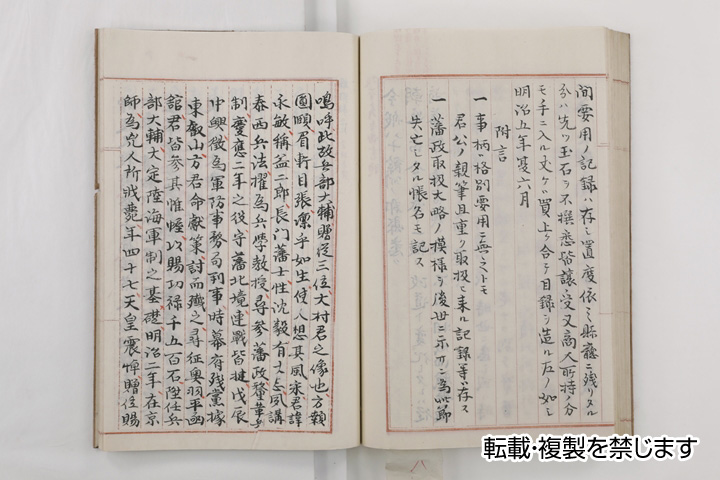 間要用ノ記録ハ存シ置度依之縣廳ニ殘リタル
分ハ先ツ玉石ヲ不撰悉皆讓受又商人所持ノ分
モ手ニ入ル丈ケハ買上ケ合テ目録ヲ造ル左ノ如シ
明治五年夏六月
附言
一事柄ハ格別要用ニ無之トモ
君公ノ親筆且重ク取扱ヒ来ル記録等ハ存ス
一藩政取扱大略ノ模様ヲ後世ニ示サン為此節
失亡シタル帳名モ記ス
嗚呼此故兵部大輔贈從三位大村君之像也方顙
圓頤眉軒目張凛乎如生使人想其風采君諱
永敏稱益二郎長門藩士性沈毅有大志夙講
泰西兵法擢為兵學教授尋參藩政釐革兵
制慶應二年之役守藩北境連戰皆捷戊辰
中興徴為軍防事務局判事時幕府殘黨據
東叡山方君命獻策討而殲之尋征奥羽平函
館君皆參其帷幄以賜功禄千五百石陞任兵
部大輔大定陸海軍制之基礎明治二年在京
師為兇人所戕薨年四十七天皇震悼贈位賜
八
転載・複製を禁じます